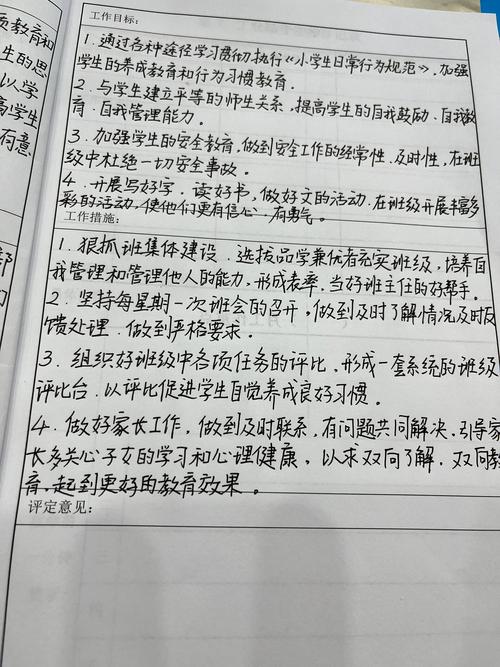 质教育和
生的思
以学
高学生
有意
部
的
工作目标:
1.通过各种途径学习贯彻执行《小学生日常行为规范》,加强
学生的养成教育和行为习惯教育.
2.与学生建立平等的师生关系,提高学生的自我鼓励.自我教
育.自我管理能力.
3.加强学生的安全教育,做到安全工作的经常性.及时性,在班
级中杜绝一切安全事故。
4.开展写好字.读好书,做好文的活动.在班级开展丰富多
彩的活动,使他们更有信心.有勇气。
工作措施:
1.狠抓班集体建设.选拔品学兼优者充实班级,培养自
我管理和管理他人的能力,形成表率.当好班主任的好帮手.
2.坚持每星期一次班会的召开,做到及时了解情况及时反
馈处理.做到严格要求.
3.组织好班级中各项任务的评比,形成一套系统的班级
评比台.以评比促进学生自觉养成良好习惯。
4.做好家长工作,做到及时联系,有问题共同解决.引导家
长多关心子女的学习和心理健康,以求双向了解.双向教
育.起到更好的教育效果。
评定意见: